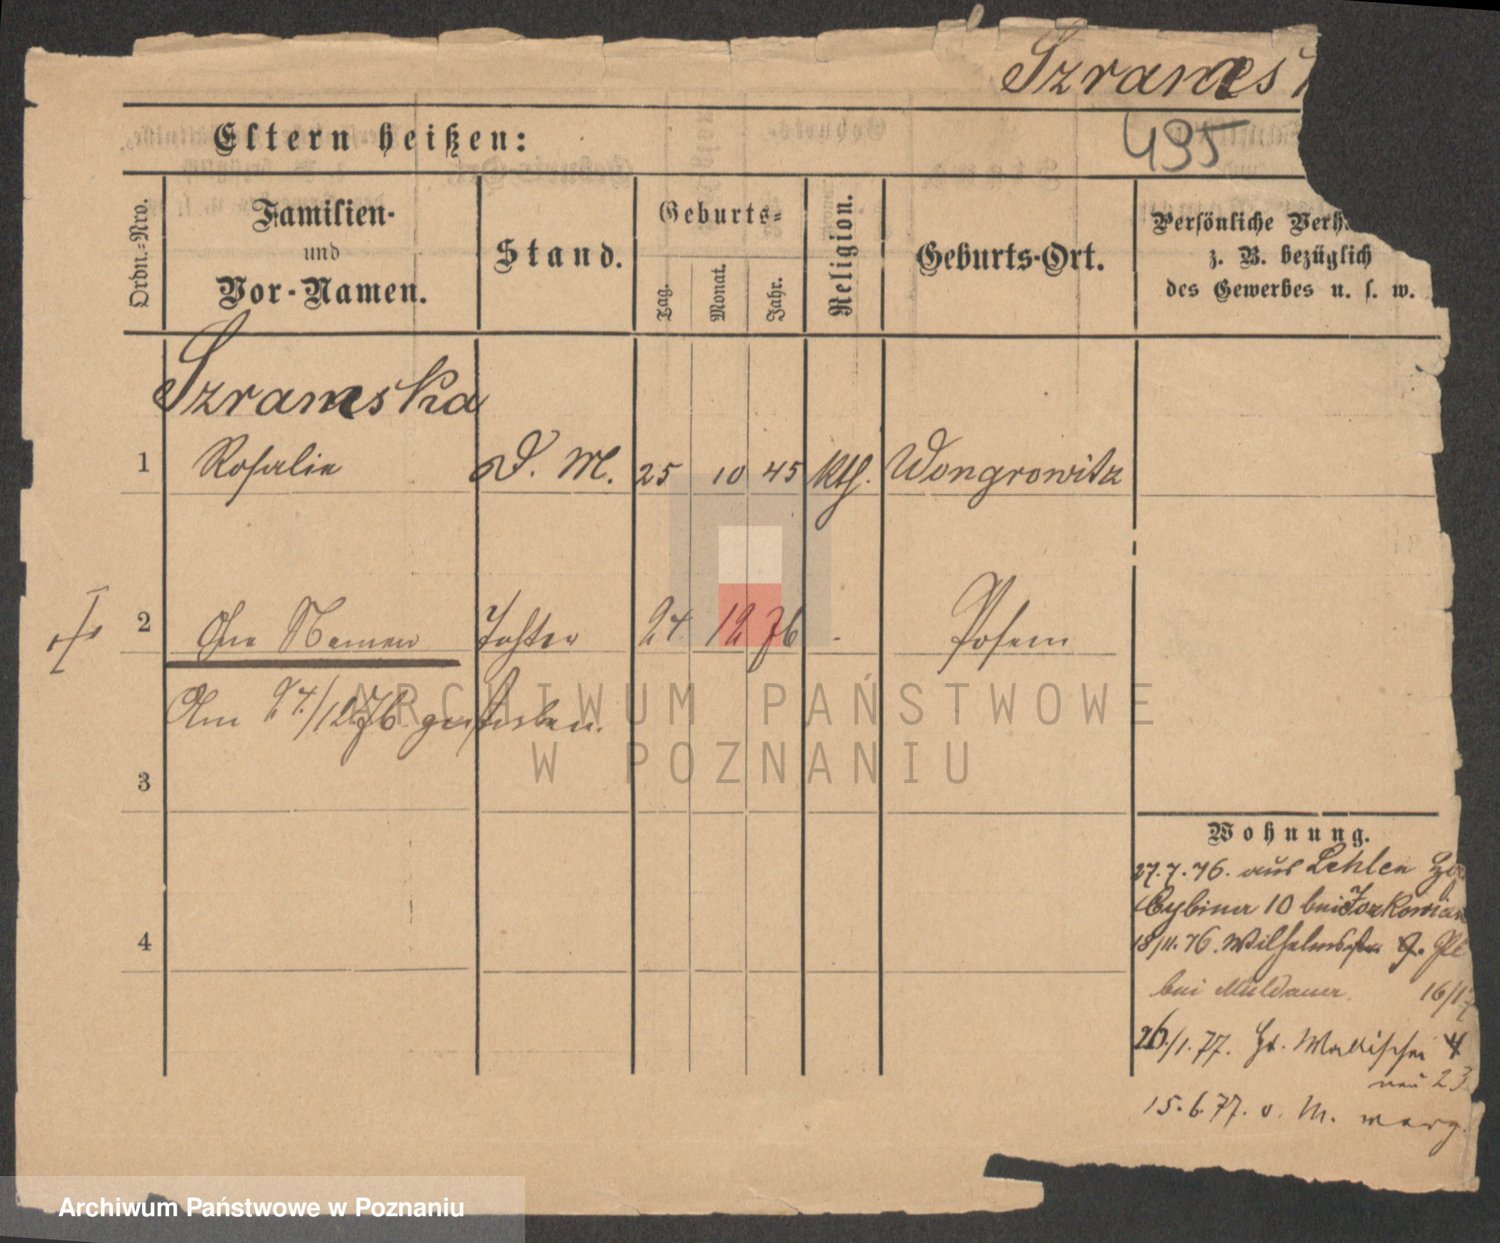 Szrames
495
Eltern heißen:
Ordn.=Nro.
Familien-
und
Vor-Namen.
Stand.
Geburts=
Tag.
Monat.
Jahr.
Religion.
Geburts-Ort.
Persönliche Verh
z. B. bezüglich
des Gewerbes u. s. w.
Szrameska
1 Rosalie D. M. 25 10 45 kth. Wongrowitz
2 Ohne Namen Tochter 24 12 76 - Posen
Am 24/12 76 gestorben.
3
4
Wohnung.
27.7.76. aus Lehlen
Cybiner 10 bei
18/11.76. Wilhelmsstr.
bei Muldauer. 16/17
26/1.77. Gr. Wallischei 4
neu 23
15.6.77. v. M. warg.
ARCHIWUM PAŃSTWOWE
W POZNANIU
Archiwum Państwowe w Poznaniu